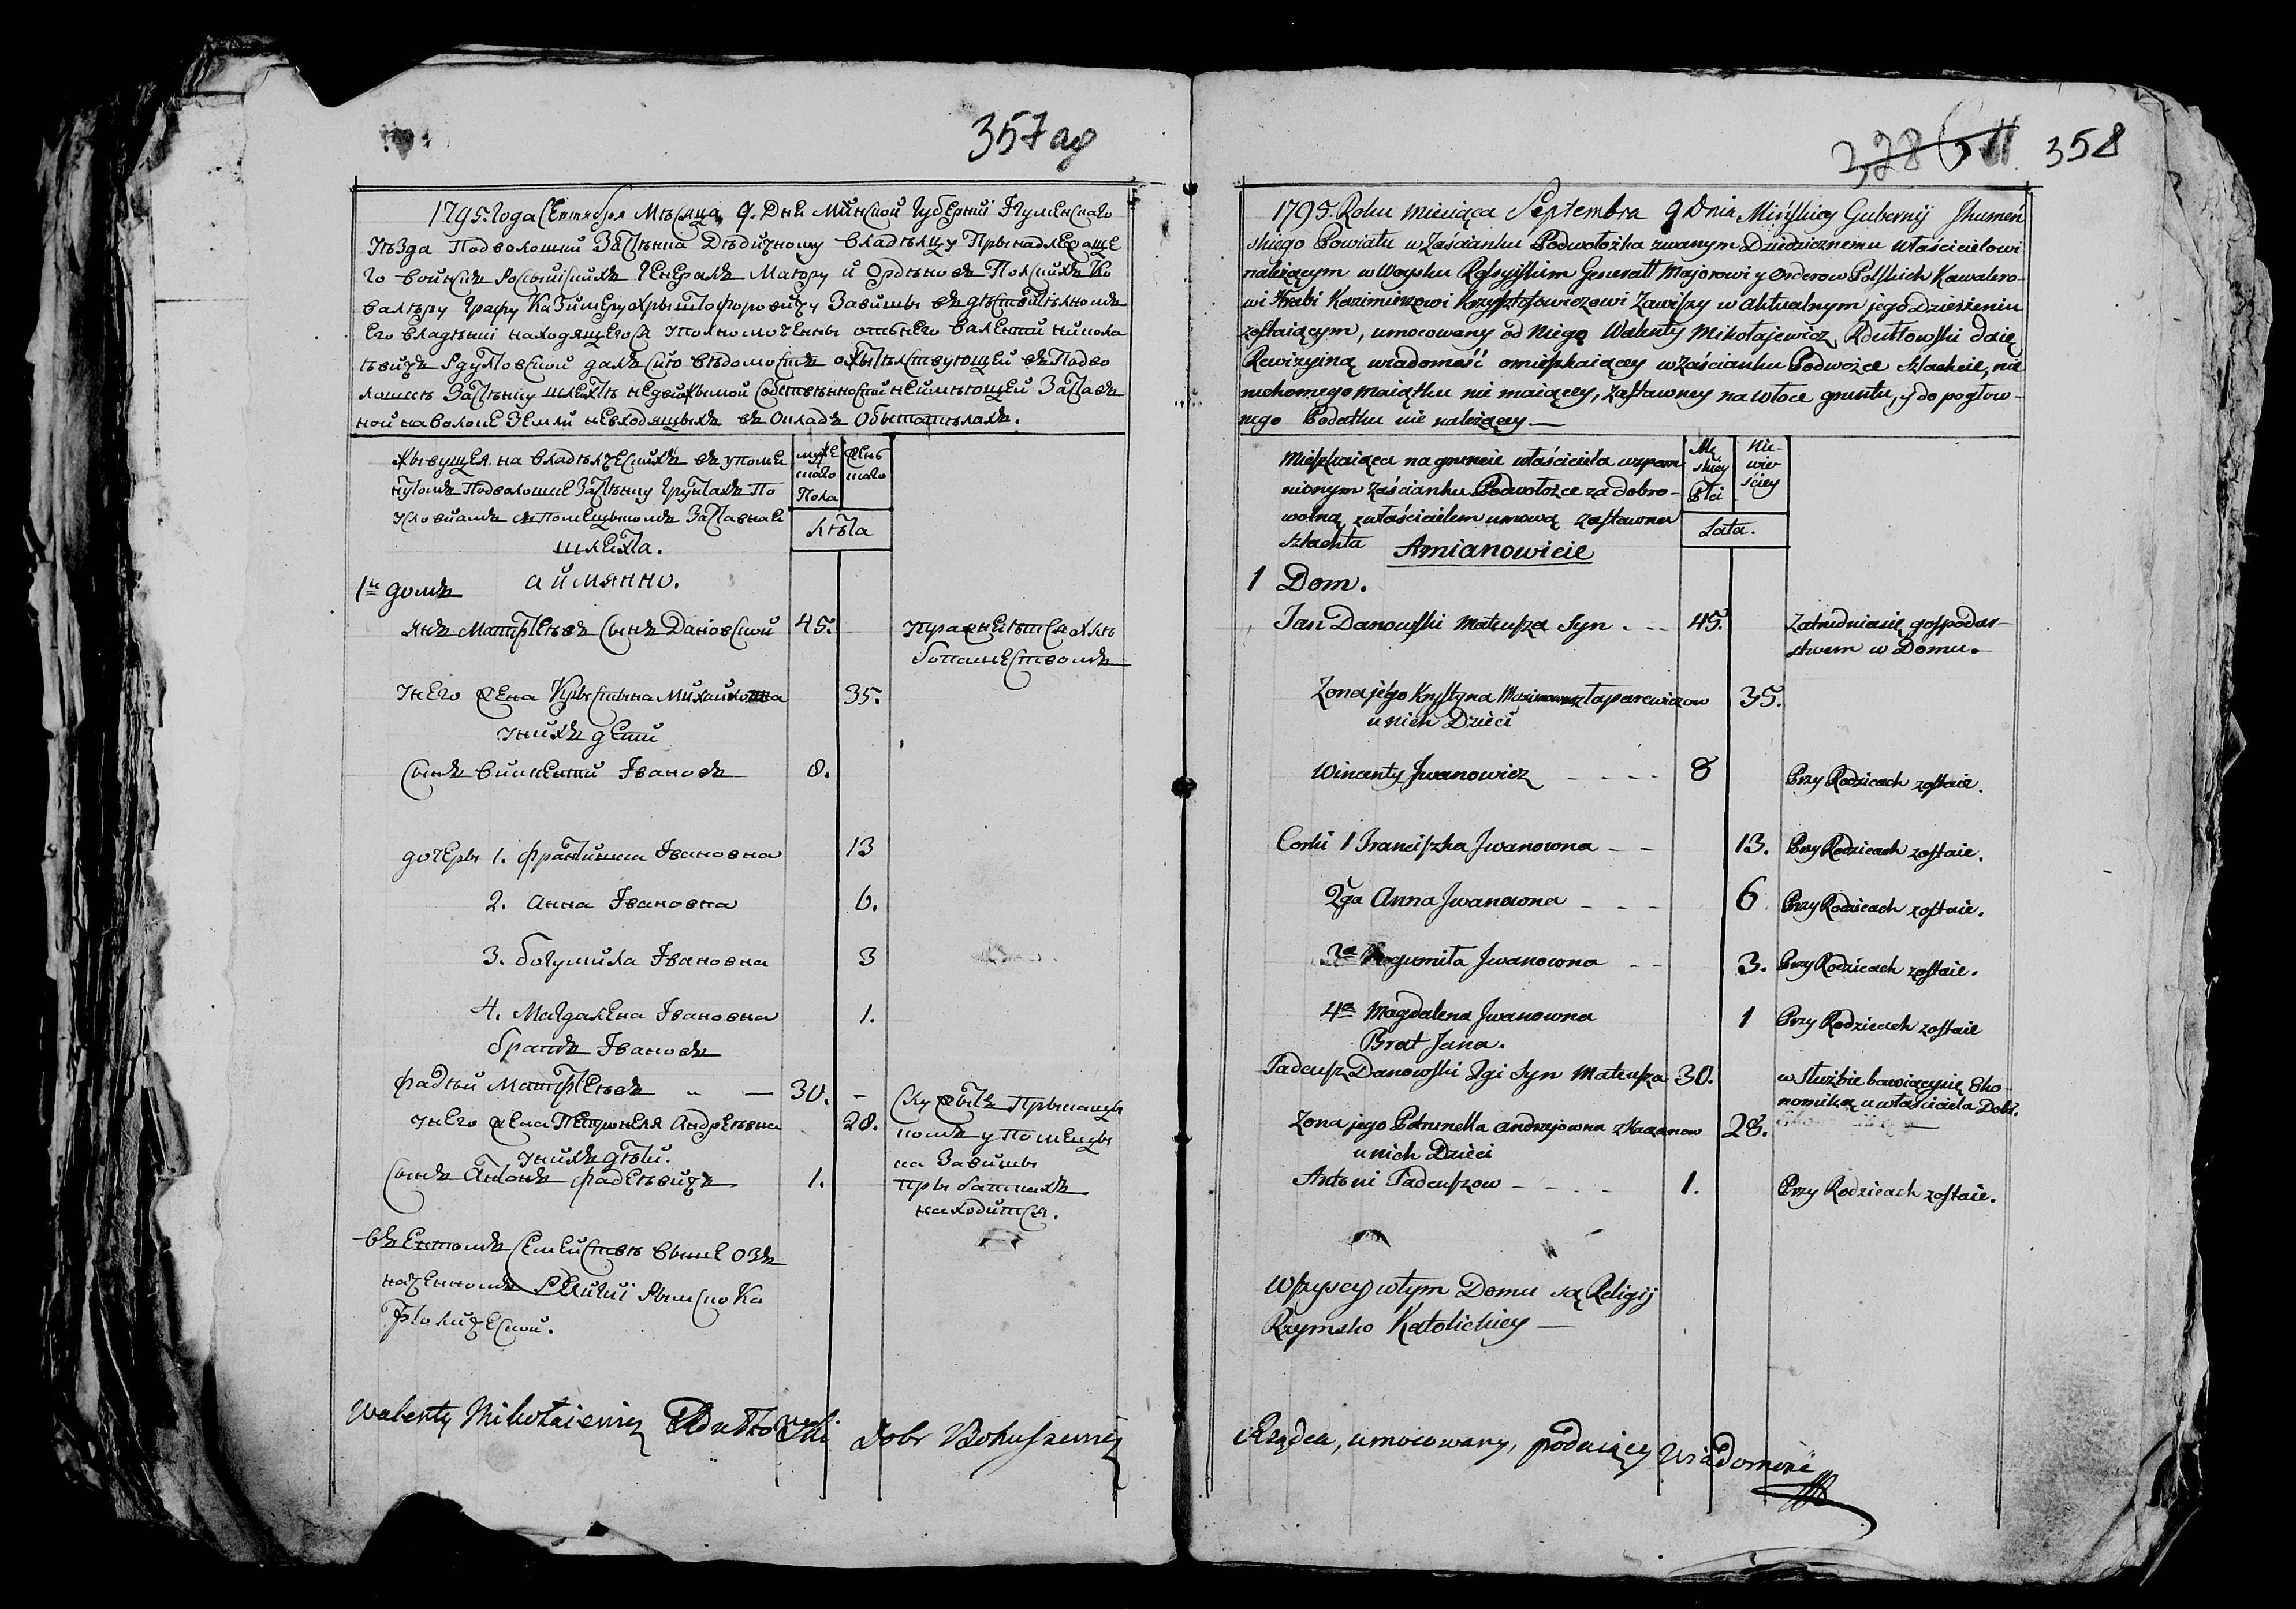 357 об
1795. года Сентября Мѣсяца 9. Дня Минской Губернiи Игуменскаго
уѣзда Подволошки Застѣнка Дѣдичному владѣлцу Принадлежаще
го войскъ Россыйскихъ Генералъ Маѣору и Орденовъ Полскихъ Ка
валѣру Графу Казимеру Крыштофоровичу Завишы въ дѣствитѣлномъ
Его владѣнiи находящегося уполномоченны отъ него валенти никола
ѣвичъ Рдултовской далъ сию вѣдомость о жытѣлствующей въ Подво
лошсе Застѣнку шлехтѣ недвижымой собственности неимѣющей Застав
ной на волоке Земли невходящыхъ въ Окладъ Обытателяхъ.
жывущея на владѣлческихъ въ упомя
нутомъ Подволошце Застѣнку грунтахъ По
условиямъ съ Помещыкомъ Заставная
шлехта.
муже
скаго
Пола
жен
скаго
Лѣта
а имянно.
1й домъ
янъ Матфѣевъ сынъ Дановской 45. упражняется хлѣ
бопашествомъ
у него жена Крыстына 35.
у нихъ дети
сынъ викенти Ивановъ 8.
дочеры 1. францишка Ивановна 13
2. Анна Ивановна 6.
3. богумила Ивановна 3
4. Магдалена Ивановна 1.
братъ Ивановъ
фадѣй Матфѣевъ „ — 30. —
у него жена Петронеля Андрѣевна 28.
служытъ
у Помещы
ка Завишы
у нихъ дѣти.
сынъ Антонъ фадеѣвичъ 1.
пры
находится.
въ ентомъ семействѣ выше озъ
наченномъ Религiи Рымско Ка
толической.
Walenty Mikołaiewicz Rdułtowski Dobr Bohuszewicz
328 358
1795. Roku miesiąca Septembra 9 Dnia Mińskiey Gubernij Jhumeń
skiego Powiatu w Zaścianku Podwołożka zwanym Dziedzicznemu Właścicielowi
należącym w Woysku Rossyiskim Generałł Majorowi y Orderow Polskich Kawalero-
wi Hrabi Kazimierzowi Krzysztofowiczowi Zawiszy w aktualnym jego Dzierżeniu
zostaiącym, umocowany od niego Walenty Mikołajewicz Rdułtowski daię
Rewizyiną wiadomość o mieszkaiącey w Zaścianku Podwożce Szlachcie, nie
ruchomego maiątku nie maiącey, zastawney na włoce gruntu, y do pogłow-
nego Podatku nie należącey —
Mieszkaiąca na gruncie właściciela wspom
nionym Zaścianku Podwołożce za dobro-
wolną z właścicielem umową zastawna
szlachta Amianowicie
Mę
skiey
Płci
Nie-
wie-
ściey
Lata.
1 Dom.
Jan Danowski Mateusza Syn . - - 45. Zatrudnia się gospodar-
stwem w Domu.
Zona jego Krystyna 35.
u nich Dzieci
Wincenty Jwanowicz - - - - 8 Przy Rodzicach zostaie.
Corki 1 Franciszka Jwanowna - - 13. Przy Rodzicach zostaie.
2ga Anna Jwanowna - - - 6 Przy Rodzicach zostaie.
3a Bogumiła Jwanowna - - 3. Przy Rodzicach zostaie.
4a Magdalena Jwanowna 1 Przy Rodzicach zostaie
Brat Jana.
Tadeusz Danowski 2gi Syn Mateusza 30. w służbie bawiący się Eko-
nomiką u właściciela Dobr.
Zona jego Petrunella Andrzejowna z Kazanow 28.
u nich Dzieci
Antoni Tadeuszow - - - - 1. Przy Rodzicach zostaie.
Wszyscy w tym Domu są Religij
Rzymsko Katolickiey —
Rządca, umocowany, podaiący Wiadomość